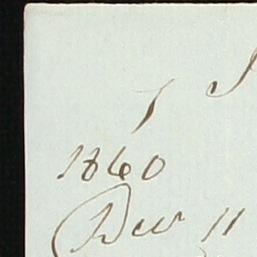 1860
Dec 11